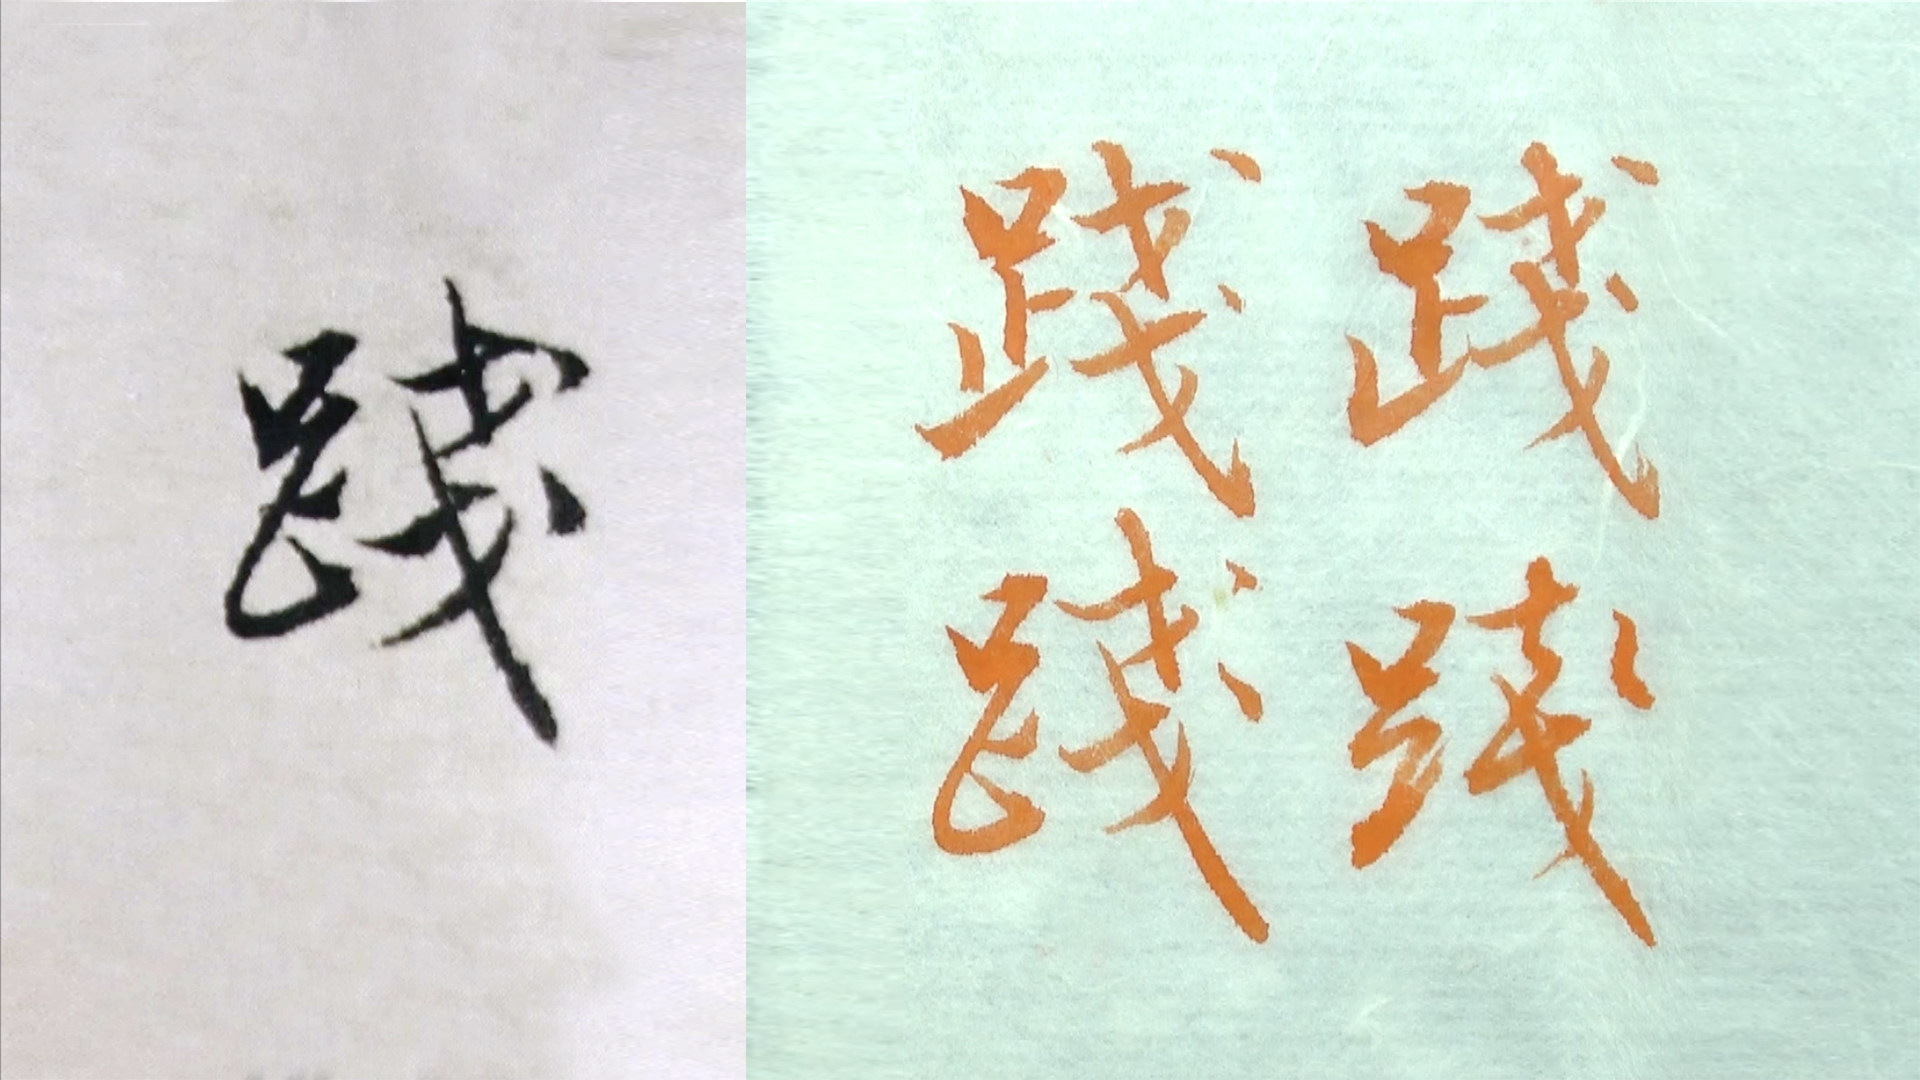 踐
踐踐
踐踐